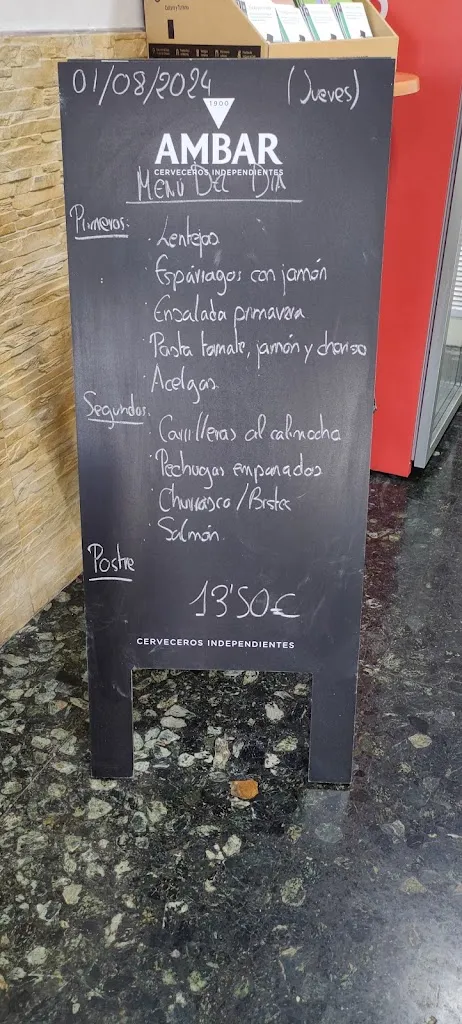 01/08/2024 (Jueves)
1900
AMBAR
CERVECEROS INDEPENDIENTES
MENÚ DEL DÍA
Primeros:
· Lentejas
· Espárragos con jamón
· Ensalada primavera
· Pasta tomate, jamón y chorizo
· Acelgas
Segundos:
· Carrilleras al calimocho
· Pechugas empanadas
· Churrasco/Bistec
· Salmón
Postre
13'50€
CERVECEROS INDEPENDIENTES